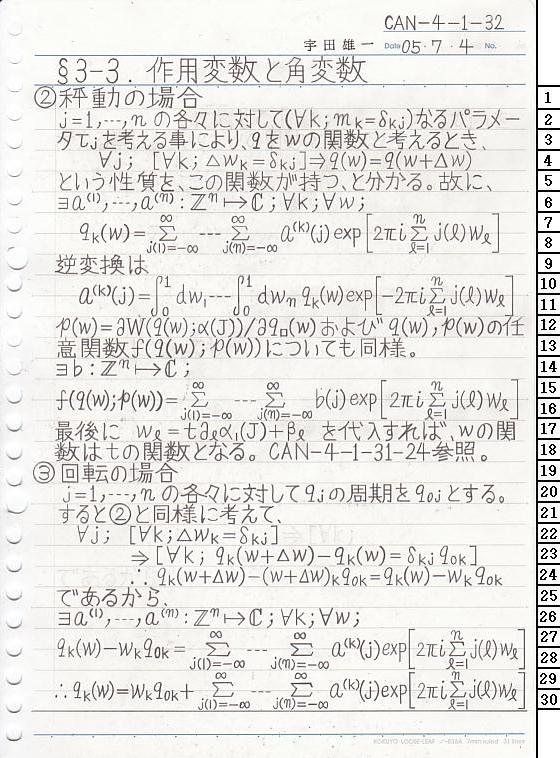 CAN-4-1-32
宇田雄一 Date 05・7・4 No.
§3-3. 作用変数と角変数
②秤動の場合
j=1,…,n の各々に対して(∀k; m_k=δ_kj)なるパラメー
タτ_jを考える事により、qをwの関数と考えるとき、
∀j; [∀k; △w_k=δ_kj]⇒q(w)=q(w+△w)
という性質を、この関数が持つ、と分かる。故に、
∃a^(1),…,a^(n):ℤ^n↦ℂ;∀k;∀w;
q_k(w)=Σ_{j(1)=-∞}^∞ --- Σ_{j(n)=-∞}^∞ a^(k)(j)exp[2πiΣ_{ℓ=1}^n j(ℓ)w_ℓ]
逆変換は
a^(k)(j)=∫_0^1 dw_1---∫_0^1 dw_n q_k(w)exp[-2πiΣ_{ℓ=1}^n j(ℓ)w_ℓ]
p(w)=∂W(q(w);α(J))/∂q_□(w)および q(w),p(w)の任
意関数f(q(w);p(w))についても同様。
∃b:ℤ^n↦ℂ;
f(q(w);p(w))=Σ_{j(1)=-∞}^∞ --- Σ_{j(n)=-∞}^∞ b(j)exp[2πiΣ_{ℓ=1}^n j(ℓ)w_ℓ]
最後に w_ℓ=t∂_ℓα_1(J)+β_ℓ を代入すれば、wの関
数はtの関数となる。CAN-4-1-31-24参照。
③回転の場合
j=1,…,n の各々に対してq_jの周期をq_0jとする。
すると②と同様に考えて、
∀j; [∀k;△w_k=δ_kj]
⇒[∀k; q_k(w+△w)-q_k(w)=δ_kj q_0k]
∴ q_k(w+△w)-(w+△w)_k q_0k=q_k(w)-w_k q_0k
であるから、
∃a^(1),…,a^(n):ℤ^n↦ℂ;∀k;∀w;
q_k(w)-w_k q_0k=Σ_{j(1)=-∞}^∞ --- Σ_{j(n)=-∞}^∞ a^(k)(j)exp[2πiΣ_{ℓ=1}^n j(ℓ)w_ℓ]
∴q_k(w)=w_k q_0k+Σ_{j(1)=-∞}^∞ --- Σ_{j(n)=-∞}^∞ a^(k)(j)exp[2πiΣ_{ℓ=1}^n j(ℓ)w_ℓ]
KOKUYO LOOSE-LEAF ノ-836A 7mm ruled 31 lines
1
2
3
4
5
6
7
8
9
10
11
12
13
14
15
16
17
18
19
20
21
22
23
24
25
26
27
28
29
30